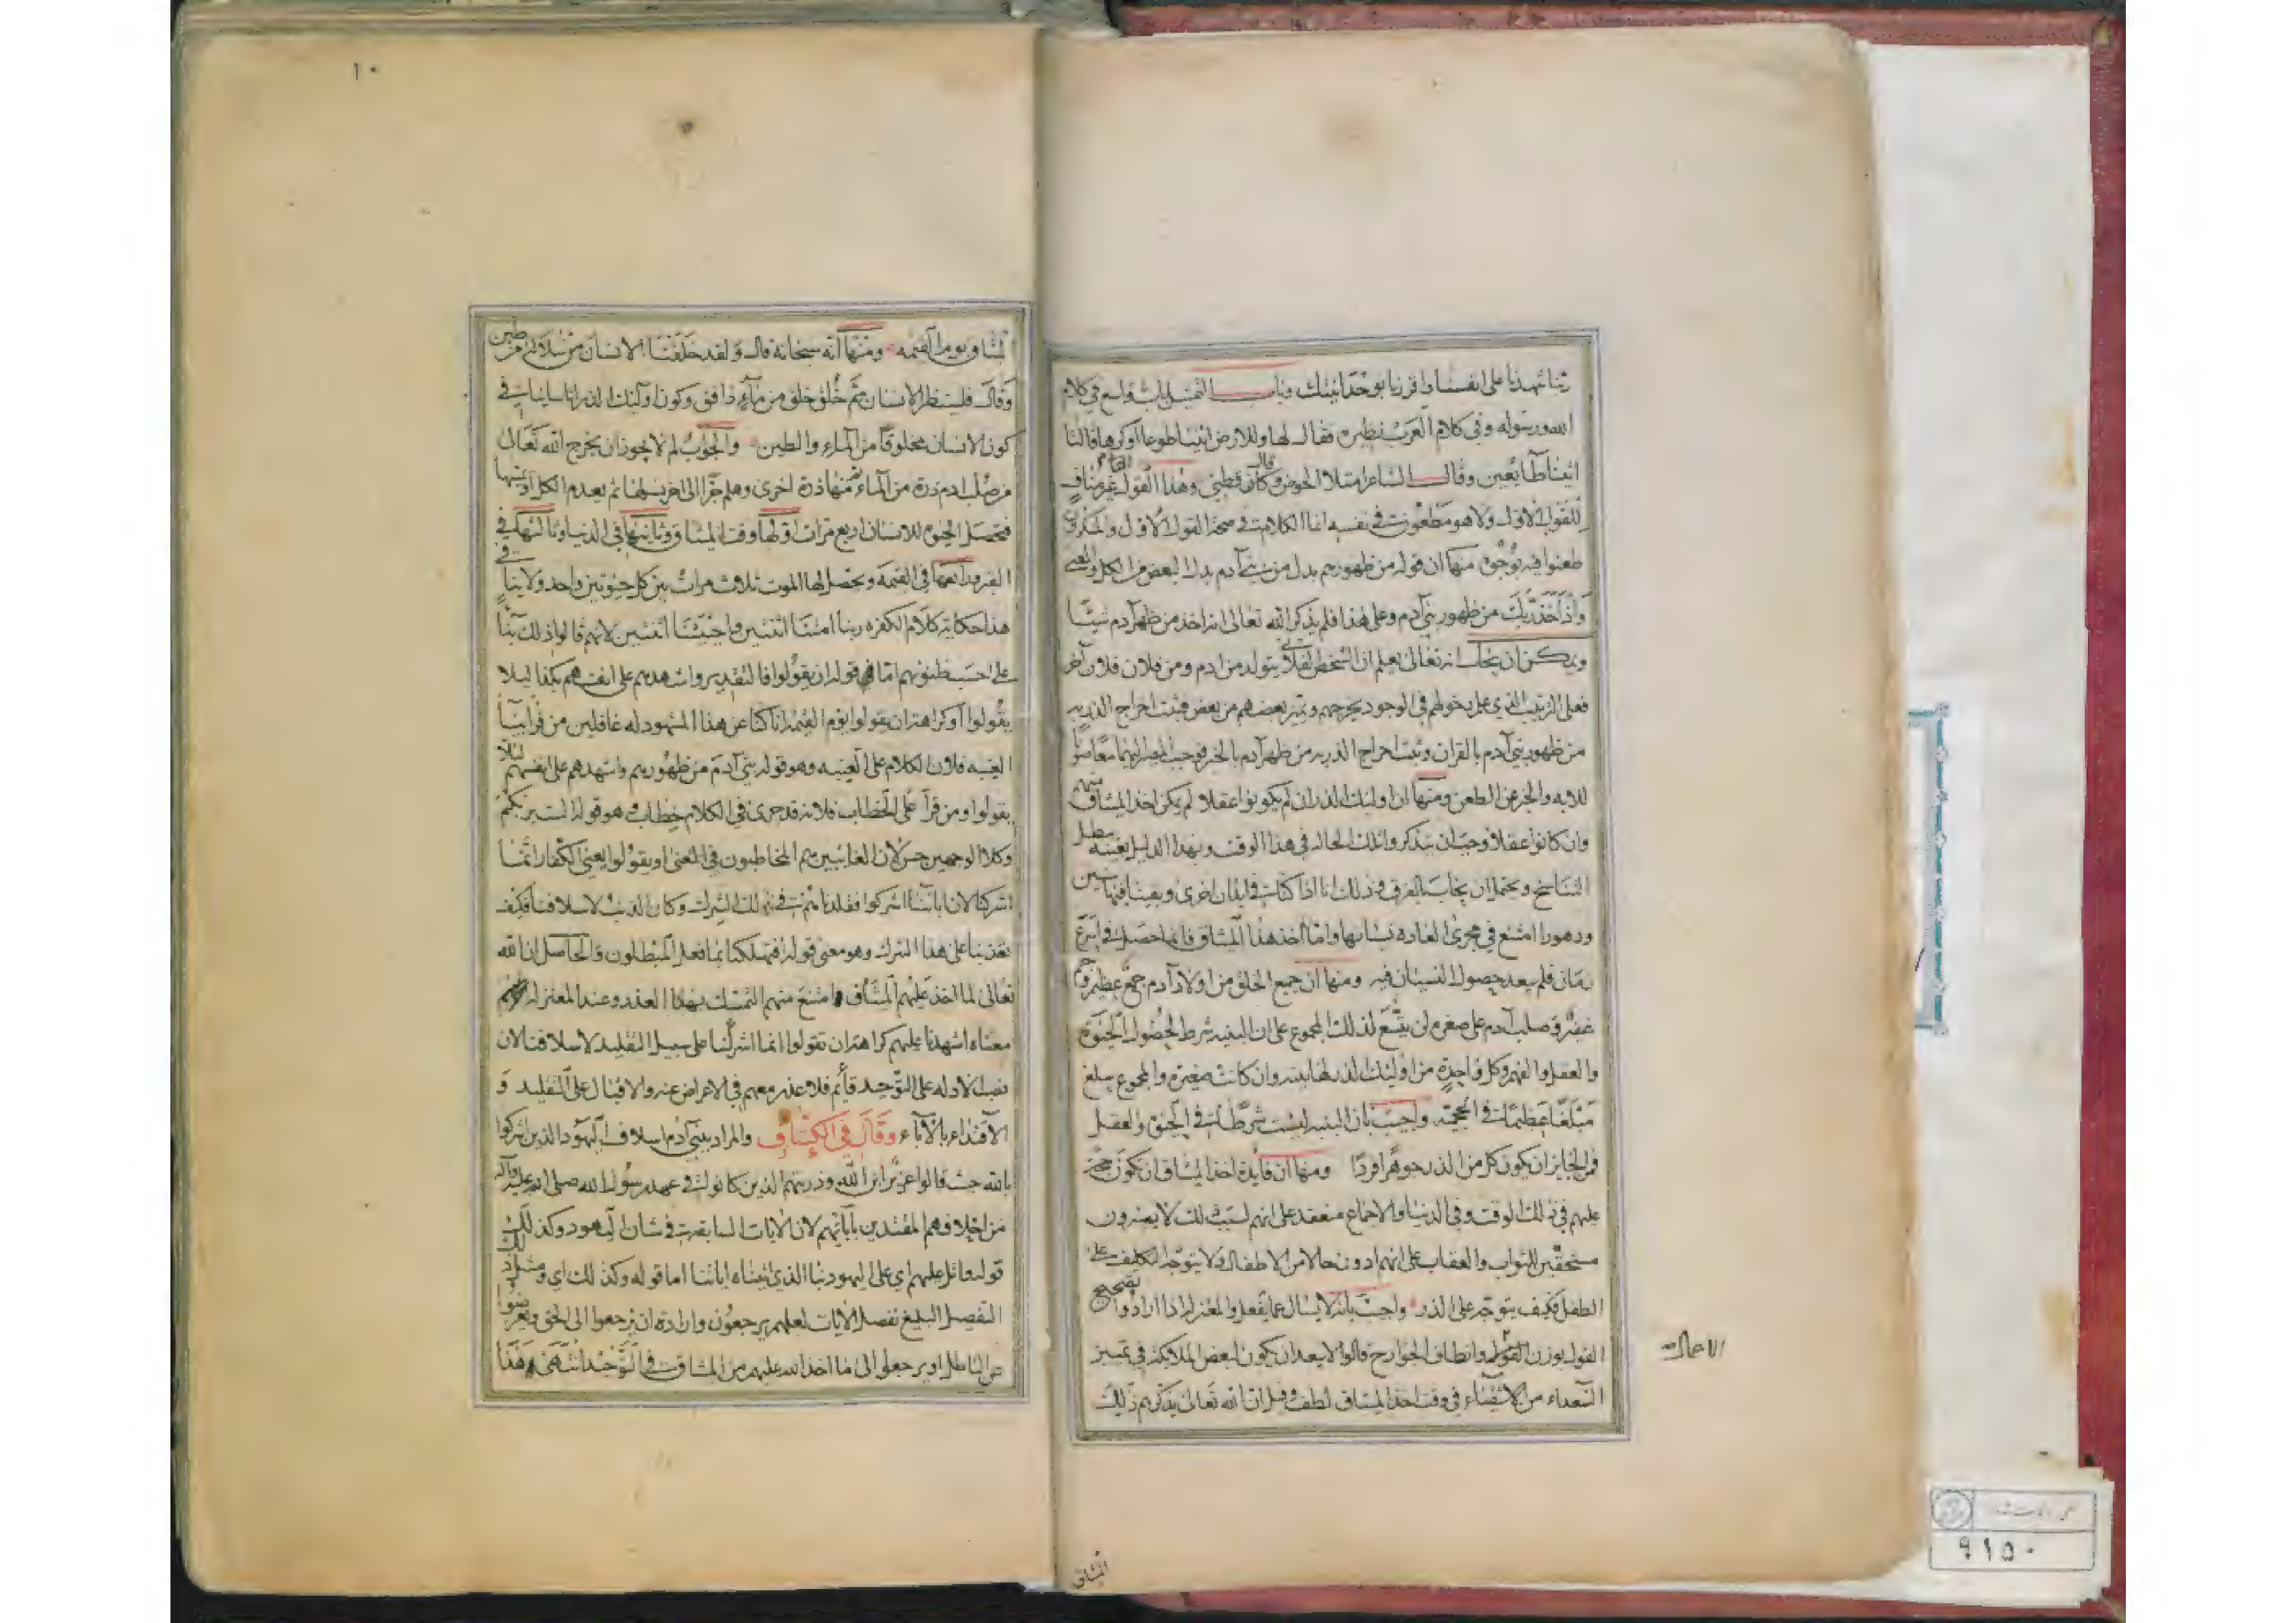 ربنا شهدنا على انفسنا واقررنا بوحدانيتك وباب التمثيل باب واسع في كلام
الله ورسوله وفي كلام العرب نظيره فقال لها وللارض ائتيا طوعا او كرها قالتا
اتينا طائعين وقال الشاعر امتلا الحوض وقال قطني وهذا القول غير مناف
للقول الاول ولا هو مطعون في نفسه انما الكلام في صحة القول الاول والمنكرون
طعنوا فيه بوجوه منها ان قوله من ظهورهم بدل من بني آدم بدل البعض من الكل والمعنى
واذ اخذ ربك من ظهور بني آدم وعلى هذا فلم يذكر الله تعالى انه اخذ من ظهر آدم شيئا
ويمكن ان يجاب انه تعالى يعلم ان الشخص الفلاني يتولد من ادم ومن فلان فلان آخر
فعلى الترتيب الذي علم دخولهم في الوجود يخرجهم ويميز بعضهم من بعض فيثبت اخراج الذريه
من ظهور بني آدم بالقران وثبت اخراج الذريه من ظهر آدم بالخبر فوجب المصير اليهما معا صونا
للايه والخبر عن الطعن ومنها ان اولئك الذر ان لم يكونوا عقلا لم يمكن اخذ الميثاق منهم
وان كانوا عقلا وجب ان يتذكروا تلك الحاله في هذا الوقت وبهذا الدليل بعينه يبطل
التناسخ ويحتمل ان يجاب بالفرق وذلك انا اذا كنا في ابدان اخرى وبقينا فيها سنين
ودهورا امتنع في مجرى العاده نسيانها واما اخذ هذا الميثاق فانما حصل في اسرع
زمان فلم يبعد حصول النسيان فيه ومنها ان جميع الخلق من اولاد آدم جمع عظيم وجم
غفير وصلب آدم على صغره لن يتسع لذلك المجموع على ان البنيه شرط لحصول الحيوة
والعقل والفهم وكل واحدة من اولئك الذر لها بنيه وان كانت صغيرة والمجموع يبلغ
مبلغا عظيما في الحجميه واجيب بان البنيه ليست شرطا في الحيوة والعقل
فمن الجايز ان يكون كل من الذر جوهرا فردا ومنها ان فايدة اخذ الميثاق ان تكون حجة
عليهم في ذلك الوقت وفي الدنيا والاجماع منعقد على انهم لسبب ذلك لا يصيرون
مستحقين للثواب والعقاب على انهم ادون حالا من الاطفال ولا يتوجه التكليف على
الطفل فكيف يتوجه على الذر واجيب بانه لا يسال عما يفعل والمعتزله اذا ارادوا تصحيح
القول بوزن القول وانطاق الجوارح قالوا لا يبعد ان يكون لبعض الملائكه في تمييز
السعداء من الاشقياء في وقت اخذ الميثاق لطف وقيل ان الله تعالى يذكرهم ذلك
الاعمال
الميثاق
١٠
الميثاق يوم القيمه ومنها انه سبحانه قال ولقد خلقنا الانسان من سلالة من طين
وقال فلينظر الانسان مم خلق خلق من ماء دافق وكون اولئك الذر اناسا ينافي
كون الانسان مخلوقا من الماء والطين والجواب لم لا يجوز ان يخرج الله تعالى
من صلب ادم ذرة من الماء ثم منها ذرة اخرى وهلم جرا الى اخر نسلها ثم يعدم الكل او يميتها
فتحصل الحيوة للانسان اربع مرات اولها وقت الميثاق وثانيها في الدنيا وثالثها في
القبر ورابعها في القيمة ويحصل لها الموت ثلاث مرات بين كل حيوتين واحد ولا ينافي
هذا حكاية كلام الكفره ربنا امتنا اثنتين واحييتنا اثنتين لانهم قالوا ذلك بناء
على حسب ظنونهم اما قوله ان يقولوا فالتقدير واشهدهم على انفسهم بكذا ليلا
يقولوا او كراهة ان يقولوا يوم القيمه انا كنا عن هذا المشهود له غافلين من قرا بياء
الغيبه فلان الكلام على الغيبه وهو قوله بني آدم من ظهورهم واشهدهم على انفسهم ليلا
يقولوا ومن قرآ على الخطاب فلانه قد جرى في الكلام خطاب وهو قوله الست بربكم
وكلا الوجهين حسن لان الغائبين هم المخاطبون في المعنى او يقولوا يعني الكفار انما
اشركنا لان اباءنا اشركوا فقلدناهم في ذلك الشرك وكان الذنب لاسلافنا فكيف
تعذبنا على هذا الشرك وهو معنى قوله افتهلكنا بما فعل المبطلون والحاصل ان الله
تعالى لما اخذ عليهم الميثاق امتنع منهم التمسك بهذا العذر وعند المعتزله
معناه اشهدنا عليهم كراهة ان تقولوا انما اشركنا على سبيل التقليد لاسلافنا لان
نصب الادله على التوحيد قائم فلا عذر معهم في الاعراض عنه والاقبال على التقليد و
الاقتداء بالآباء وقال في الكشاف والمراد ببني آدم اسلاف اليهود الذين اشركوا
بالله حيث قالوا عزير ابن الله وذريتهم الذين كانوا في عهد رسول الله صلى الله عليه وآله
من اخلافهم المقتدين بآبائهم لان الايات السابقه في شان اليهود وكذلك
قوله واتل عليهم اي على اليهود نبا الذي اتيناه اياتنا اما قوله وكذلك اي ومثل ذلك
التفصيل البليغ نفصل الايات لعلهم يرجعون وارادة ان يرجعوا الى الحق ويعرضوا
عن الباطل او يرجعوا الى ما اخذ الله عليهم من الميثاق في التوحيد انتهى وهذا
٩١٥٠